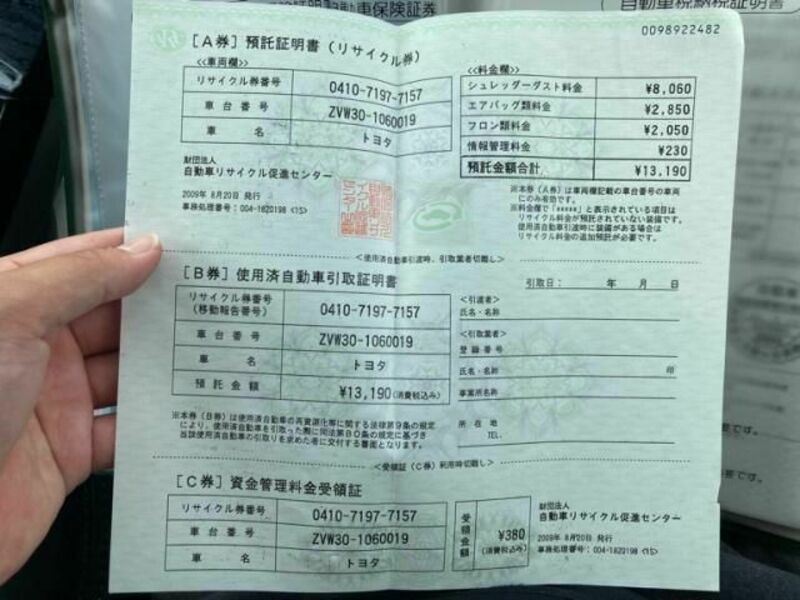 自動車保険証券
自動車税納税証明書
0098922482
[A券] 預託証明書 (リサイクル券)
≪車両欄≫
リサイクル券番号 0410-7197-7157
車台番号 ZVW30-1060019
車名 トヨタ
財団法人
自動車リサイクル促進センター
2009年 8月20日 発行
事務処理番号:004-1620198 <15>
≪料金欄≫
シュレッダーダスト料金 ¥8,060
エアバッグ類料金 ¥2,850
フロン類料金 ¥2,050
情報管理料金 ¥230
預託金額合計 ¥13,190
※本券(A券)は車両欄記載の車台番号の車両
にのみ有効です。
※料金欄で「*****」と表示されている項目は
リサイクル料金が預託されていない装備です。
使用済自動車引渡時に装備がある場合は
リサイクル料金の追加預託が必要です。
<使用済自動車引渡時、引取業者切離し>
[B券] 使用済自動車引取証明書
リサイクル券番号
(移動報告番号) 0410-7197-7157
車台番号 ZVW30-1060019
車名 トヨタ
預託金額 ¥13,190(消費税込み)
※本券(B券)は使用済自動車の再資源化等に関する法律第9条の規定
により、使用済自動車を引取った際に同法第80条の規定に基づき
当該使用済自動車の引取りを求めた者に交付する書面となります。
引取日: 年 月 日
<引渡者>
氏名・名称
<引取業者>
登録番号
氏名・名称 印
事業所名称
所在地
TEL.
<受領証(C券)利用時切離し>
[C券] 資金管理料金受領証
リサイクル券番号 0410-7197-7157
車台番号 ZVW30-1060019
車名 トヨタ
受領金額 ¥380
(消費税込み)
財団法人
自動車リサイクル促進センター
2009年 8月20日 発行
事務処理番号:004-1620198 <15>